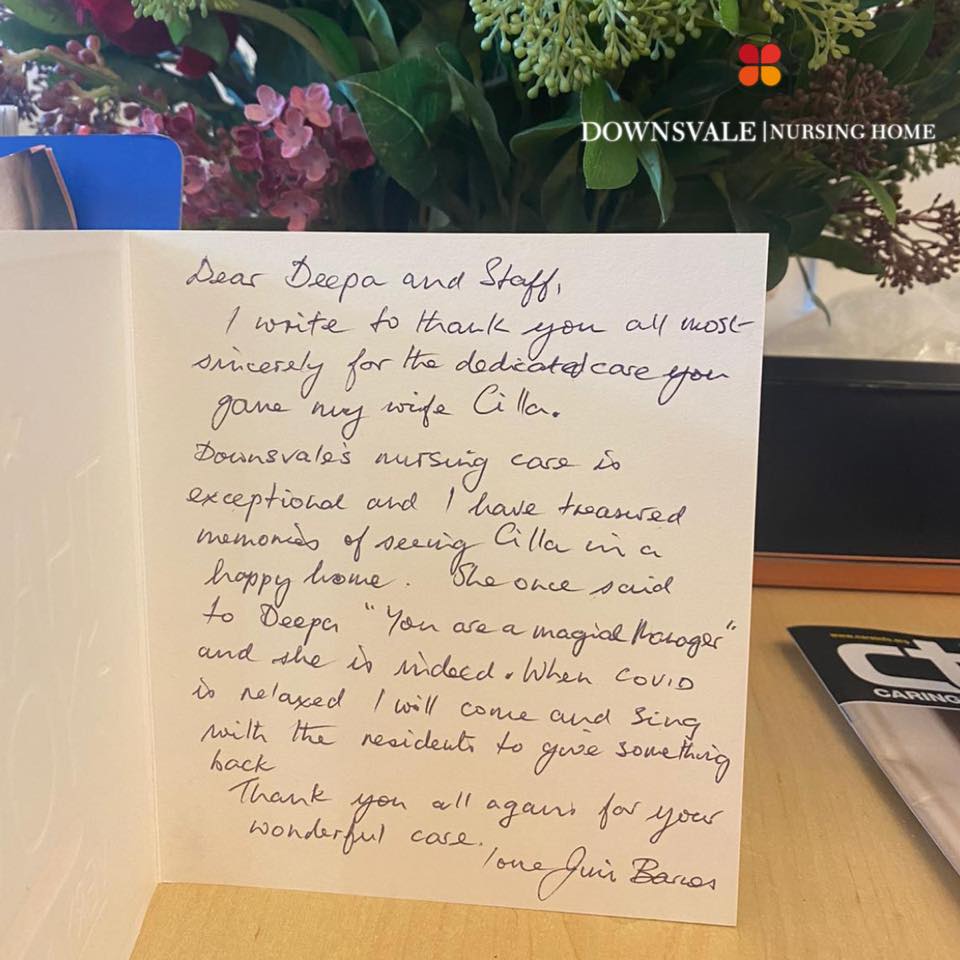 DOWNSVALE | NURSING HOME
Dear Deepa and Staff,
I write to thank you all most
sincerely for the dedicated care you
gave my wife Cilla.
Downsvale's nursing care is
exceptional and I have treasured
memories of seeing Cilla in a
happy home. She once said
to Deepa "You are a magical Manager"
and she is indeed. When COVID
is relaxed I will come and Sing
with the residents to give something
back
Thank you all again for your
wonderful care.
love Jim
CARING